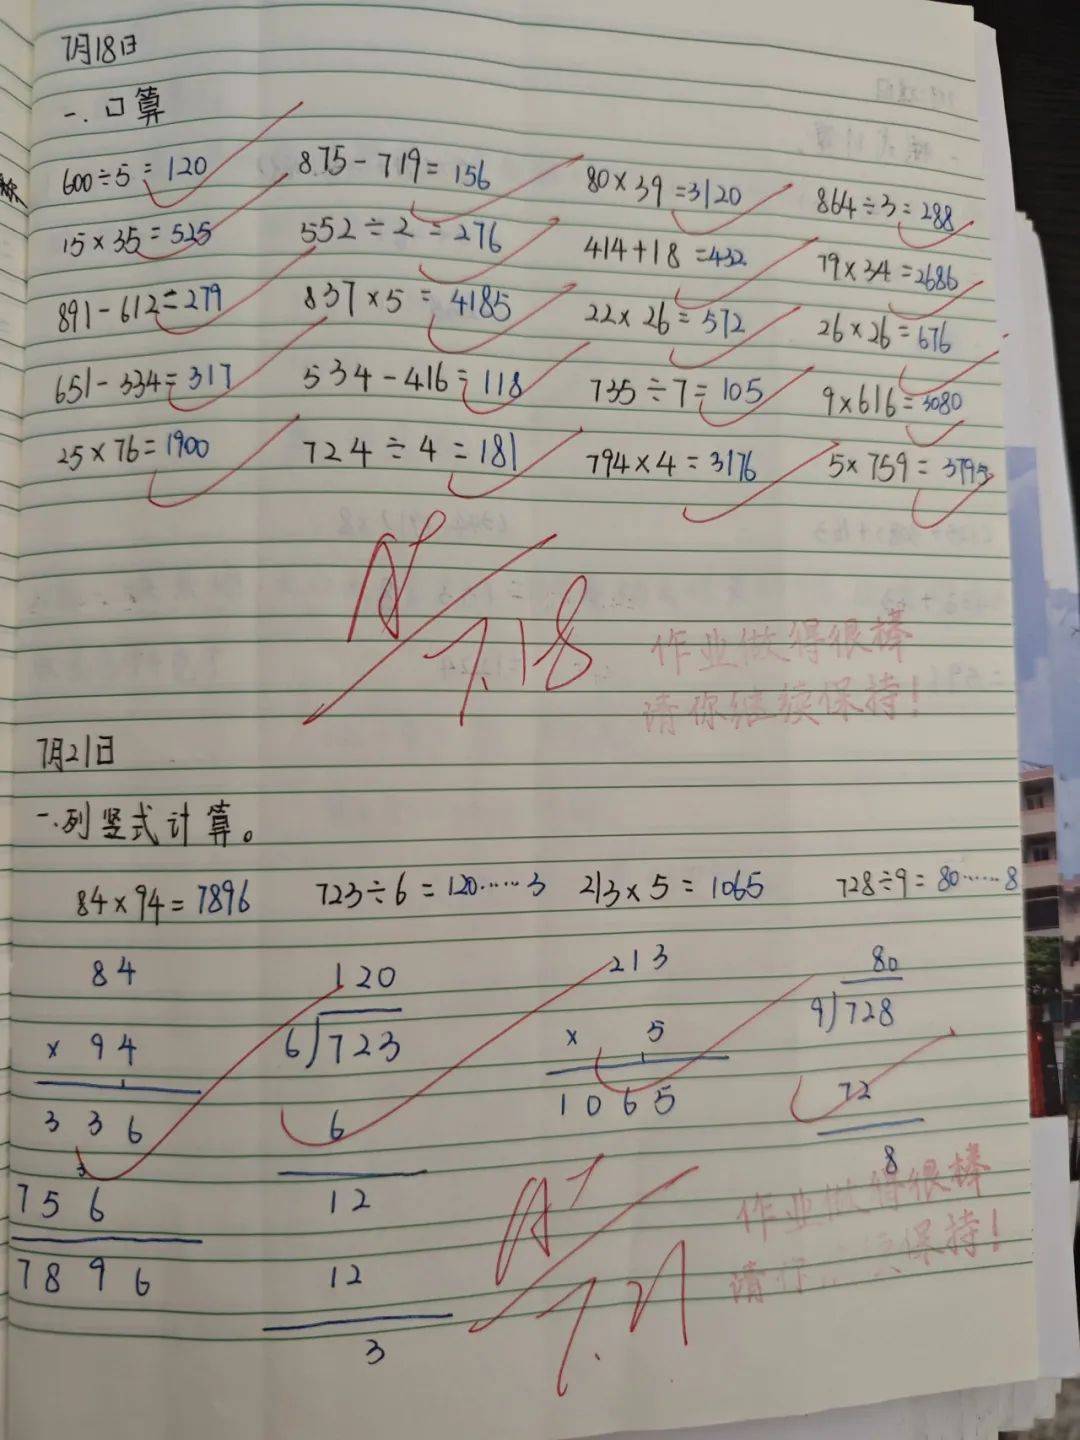 7月18日
一.口算
600÷5=120 875-719=156 80×39=3120 864÷3=288
15×35=525 552÷2=276 414+18=432 79×34=2686
891-612=279 837×5=4185 22×26=572 26×26=676
651-334=317 534-416=118 735÷7=105 9×616=3080
25×76=1900 724÷4=181 794×4=3176 5×759=3795
A+
7.18
作业做得很棒
请你继续保持!
7月21日
一.列竖式计算。
84×94=7896 723÷6=120……3 213×5=1065 728÷9=80……8
84 120 213 80
× 94 6)723 × 5 9)728
336 6 1065 72
756 12 8
7896 12
3
A+
7.21
作业做得很棒
请你 保持!